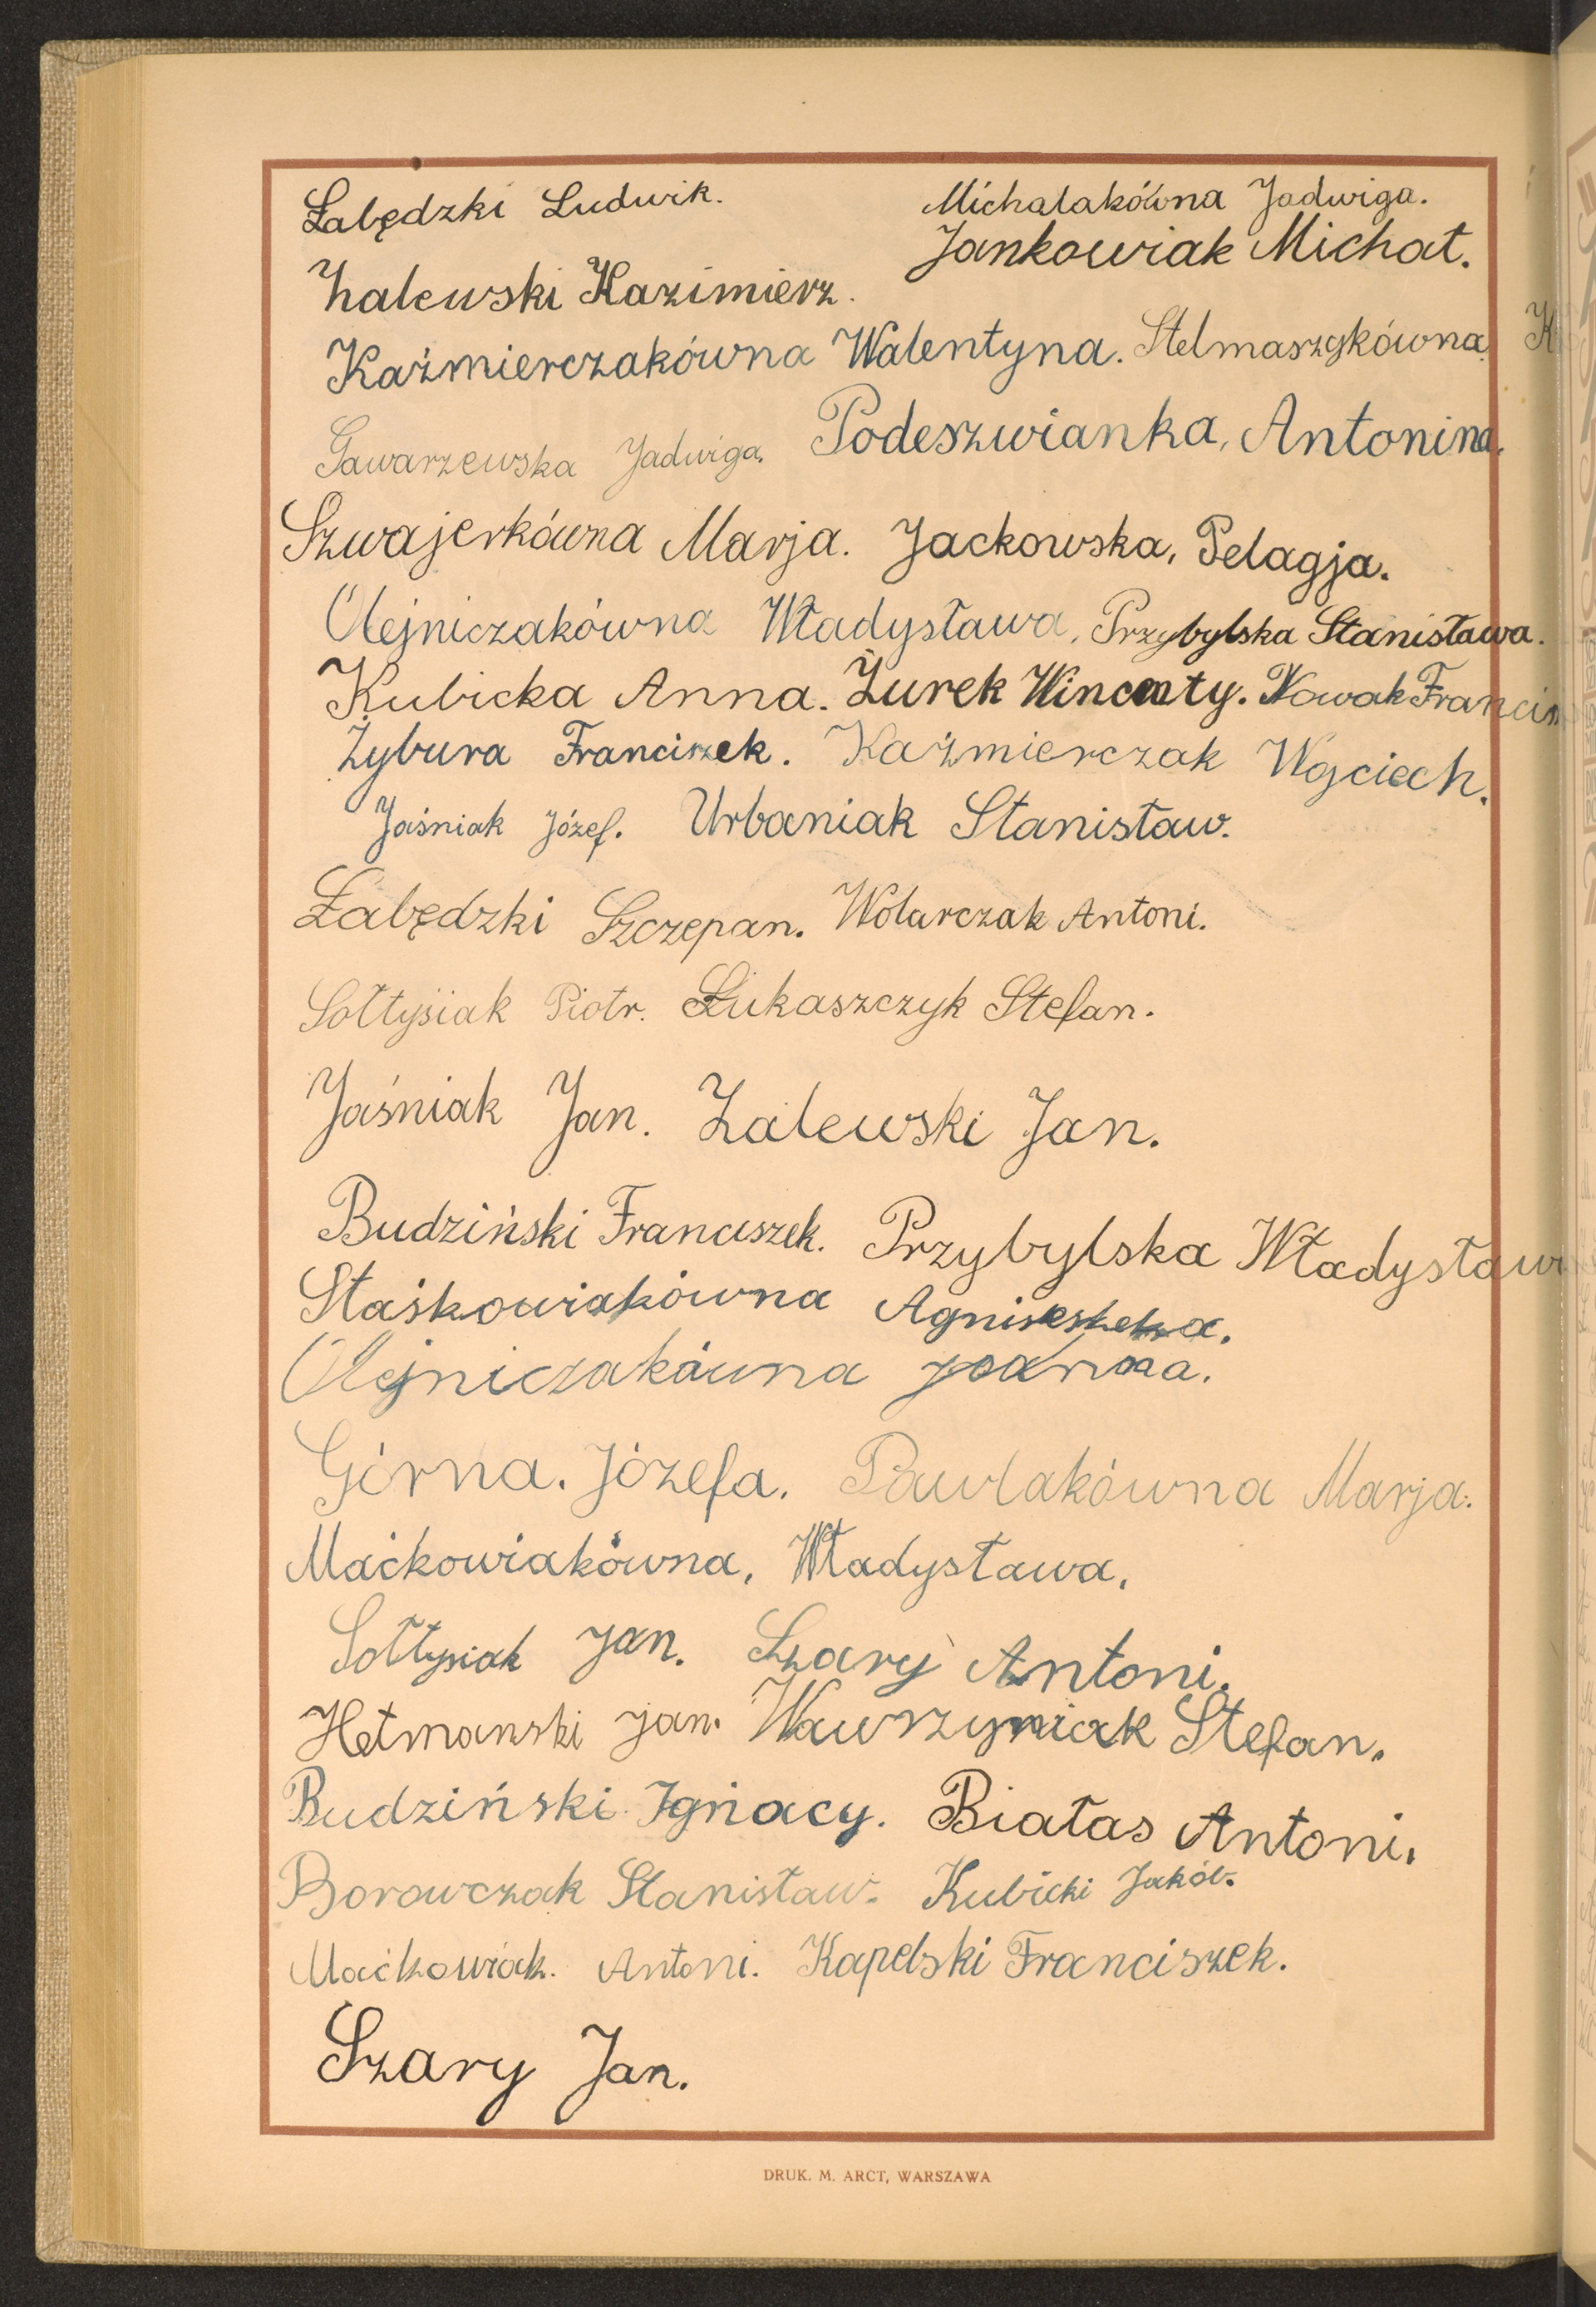 Łabędzki Ludwik. Michalakówna Jadwiga.
Jankowiak Michał.
Zalewski Kazimierz.
Kaźmierczakówna Walentyna. Stelmaszykówna K
Gawarzewska Jadwiga. Podeszwianka, Antonina.
Szwajerkówna Marja. Jackowska, Pelagja.
Olejniczakówna Władysława, Przybylska Stanisława.
Kubicka Anna. Żurek Wincenty. Nowak Francis
Żybura Franciszek. Kaźmierczak Wojciech.
Jaśniak Józef. Urbaniak Stanisław.
Łabędzki Szczepan. Wolarczak Antoni.
Sołtysiak Piotr. Łukaszczyk Stefan.
Jaśniak Jan. Zalewski Jan.
Budziński Franciszek. Przybylska Władysław
Staśkowiakówna Agnieszka.
Olejniczakówna Joanna.
Górna. Józefa. Pawlakówna Marja.
Maćkowiakówna, Władysława,
Sołtysiak Jan. Szary Antoni.
Hetmanski Jan. Wawrzyniak Stefan.
Budziński Ignacy. Białas Antoni.
Borowczak Stanisław. Kubicki Jakób.
Maćkowiak. Antoni. Kapelski Franciszek.
Szary Jan.
DRUK. M. ARCT, WARSZAWA